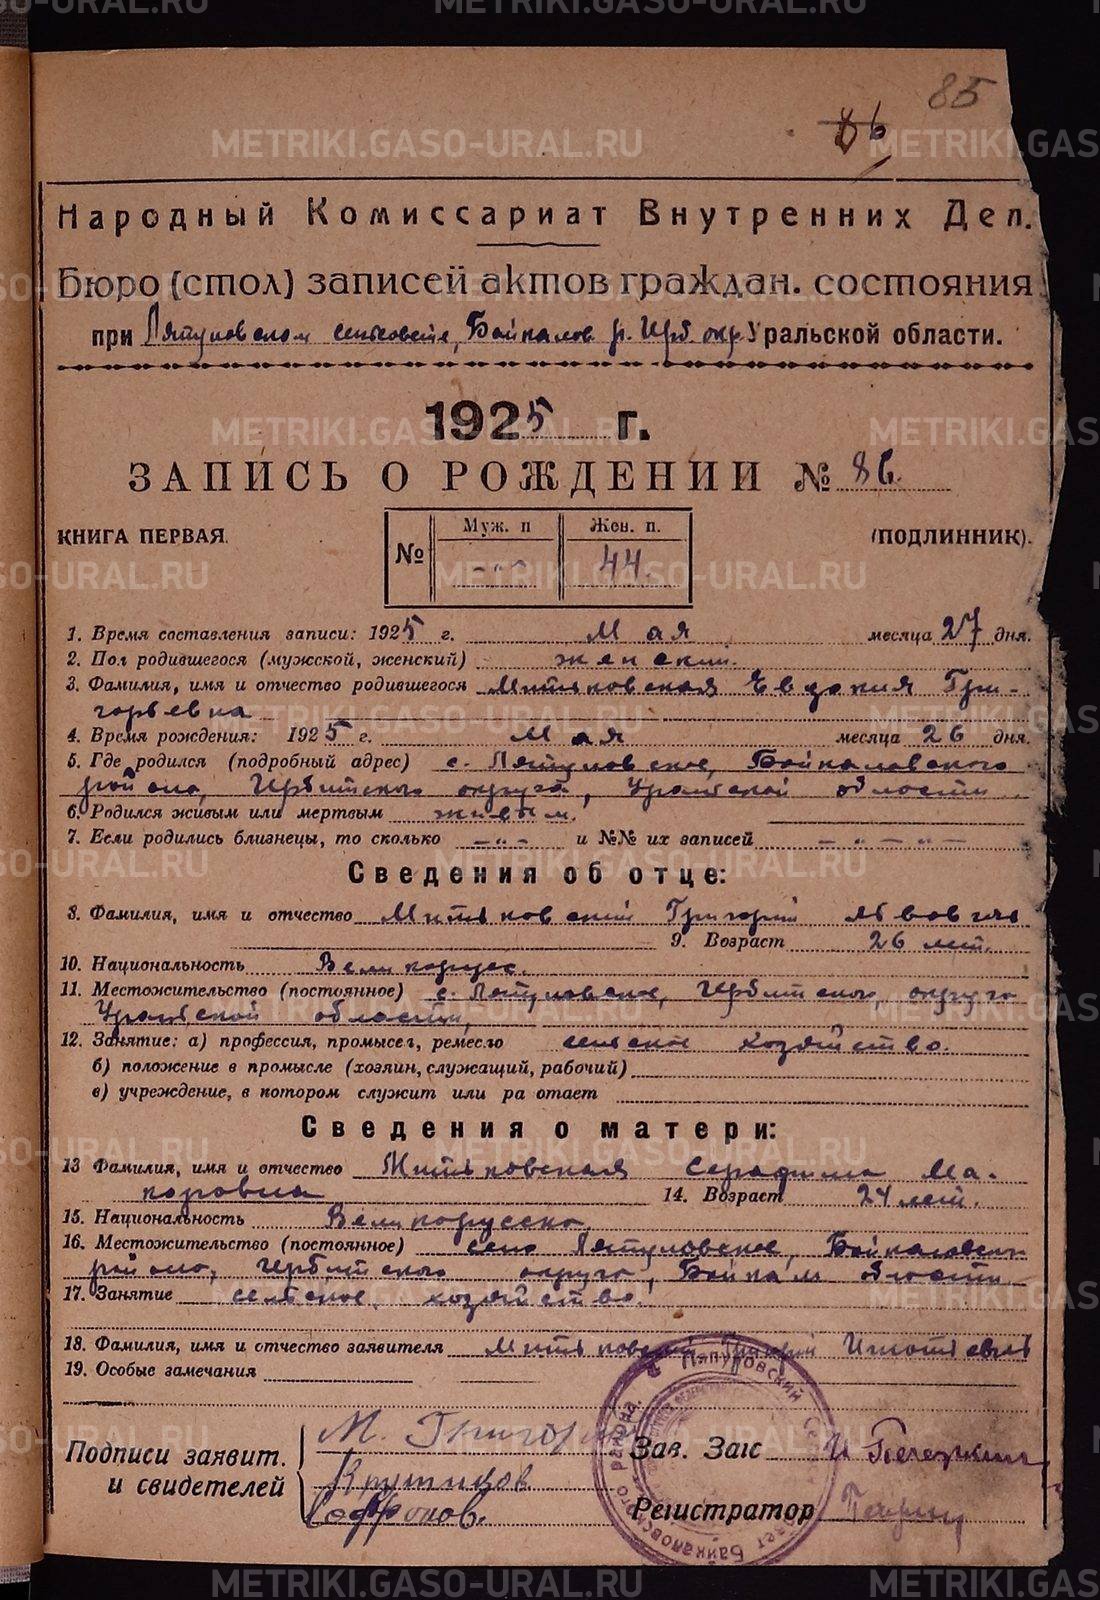 85
86
Народный Комиссариат Внутренних Дел.
Бюро (стол) записей актов граждан. состояния
при Ляпуновском сельсовете, Байкалов. р. Ирб. окр. Уральской области.
1925 г.
ЗАПИСЬ О РОЖДЕНИИ № 86.
КНИГА ПЕРВАЯ. (ПОДЛИННИК).
№ Муж. п Жен. п.
44.
1. Время составления записи: 1925 г. Мая месяца 27 дня.
2. Пол родившегося (мужской, женский) женский.
3. Фамилия, имя и отчество родившегося Митьковская Евдокия Гри-
горьевна
4. Время рождения: 1925 г. Мая месяца 26 дня.
5. Где родился (подробный адрес) с. Ляпуновское, Байкаловского
района, Ирбитского округа, Уральской области.
6. Родился живым или мертвым живым.
7. Если родились близнецы, то сколько -"- и №№ их записей - " - " -
Сведения об отце:
8. Фамилия, имя и отчество Митьковский Григорий
9. Возраст 26 лет.
10. Национальность Великорус.
11. Местожительство (постоянное) с. Ляпуновское, Ирбитского округа
Уральской области,
12. Занятие: а) профессия, промысел, ремесло сельское хозяйство.
б) положение в промысле (хозяин, служащий, рабочий)
в) учреждение, в котором служит или ра отает
Сведения о матери:
13 Фамилия, имя и отчество Митьковская Серафима Ма-
каровна 14. Возраст 24 лет.
15. Национальность Великорусска.
16. Местожительство (постоянное) село Ляпуновское, Байкаловск
района, Ирбитского округа, области
17. Занятие сельское хозяйство.
18. Фамилия, имя и отчество заявителя Митьковский Григорий
19. Особые замечания
Подписи заявит. и свидетелей
М. Григорий
Крутиков
Софронов.
Зав. Загс
Регистратор
Ляпуновский
Байкаловского района
METRIKI.GASO-URAL.RU